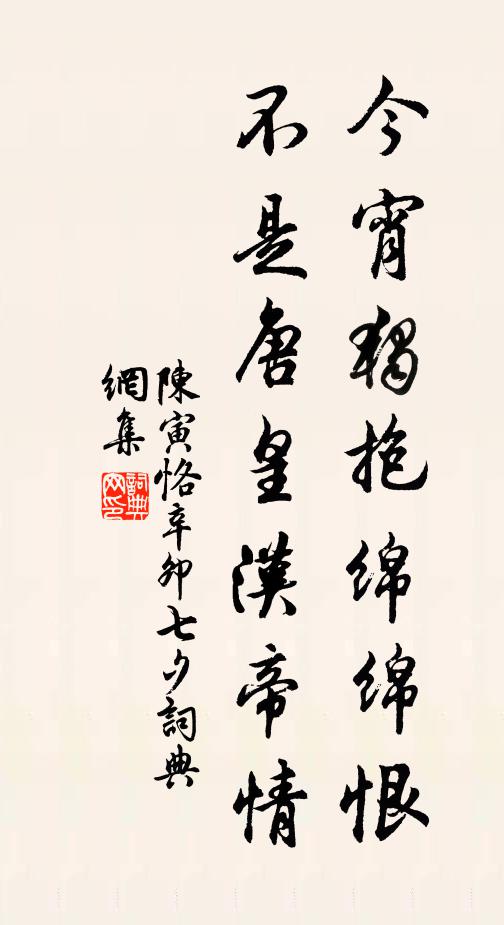 今宵獨抱綿綿恨
不是唐皇漢帝情
陳寅恪辛卯七夕詞典
網集
詞典
网印